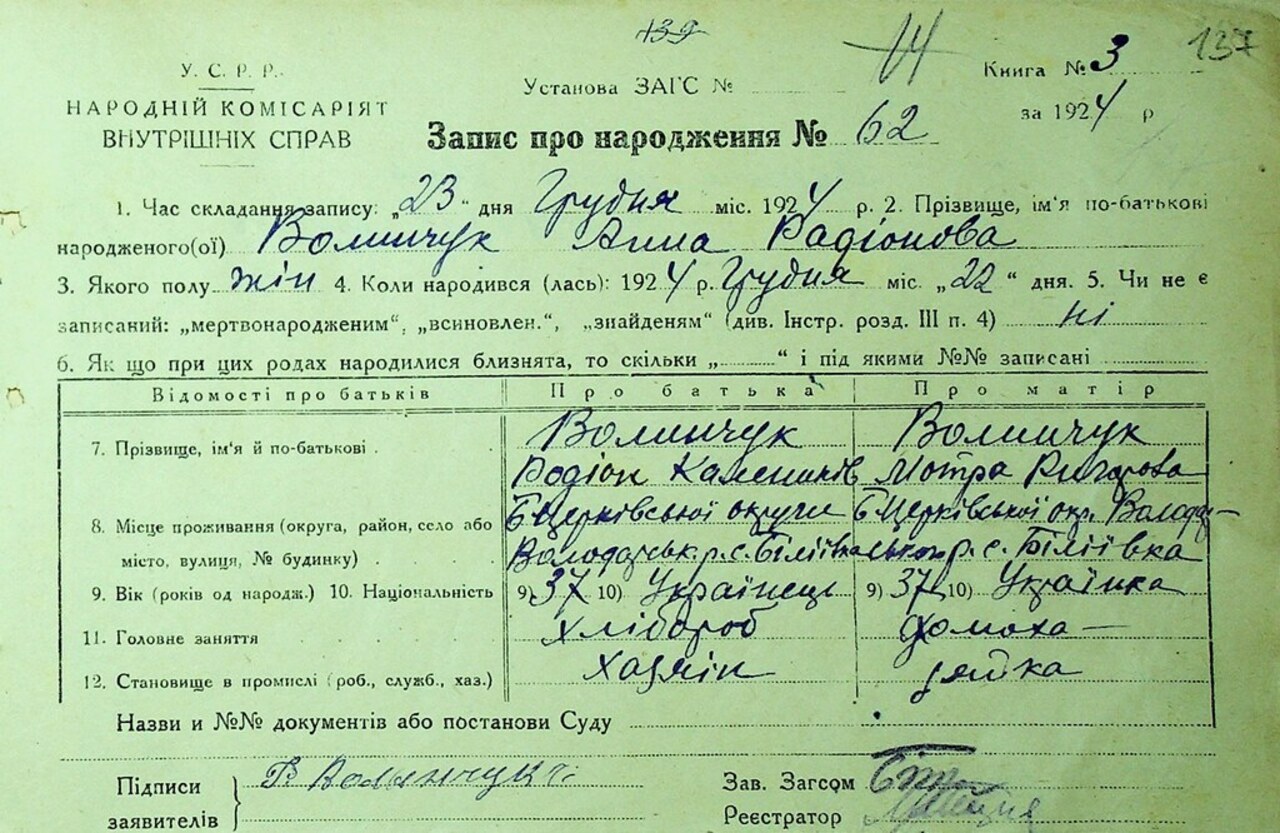 139
14
137
У. С. Р. Р.
НАРОДНІЙ КОМІСАРІЯТ
ВНУТРІШНІХ СПРАВ
Установа ЗАГС №
Книга № 3
за 1924 р
Запис про народження № 62
1. Час складання запису: „23“ дня Грудня міс. 1924 р. 2. Прізвище, ім'я по-батькові
народженого(ої) Волинчук Анна Радіонова
3. Якого полу жін 4. Коли народився (лась): 1924 р. Грудня міс. „22“ дня. 5. Чи не є
записаний: „мертвонародженим“, „всиновлен.“, „знайденям“ (див. Інстр. розд. III п. 4) ні
6. Як що при цих родах народилися близнята, то скільки „ “ і під якими №№ записані
Відомості про батьків Про батька Про матір
7. Прізвище, ім'я й по-батькові Волинчук Волинчук
Родіон Калеників Мотра Ригорова
8. Місце проживання (округа, район, село або Б Церківської округи Б Церківської окр. Волода-
місто, вулиця, № будинку) Володарськ. р. с. Біліївка ськом р. с. Біліївка
9. Вік (років од народж.) 10. Національність 9) 37 10) Українець 9) 37 10) Українка
11. Головне заняття Хлібороб Домоха-
12. Становище в промислі (роб., служб., хаз.) Хазяїн зяйка
Назви и №№ документів або постанови Суду
Підписи
заявителів
Р Волинчук
Зав. Загсом
Реєстратор